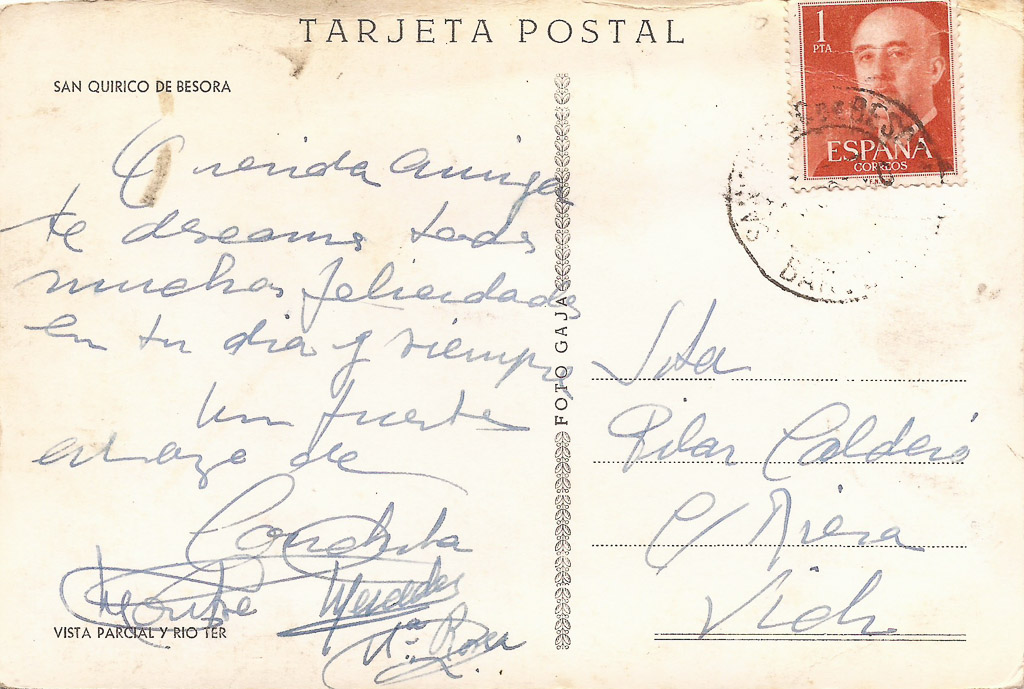 TARJETA POSTAL
SAN QUIRICO DE BESORA
Querida Amiga
te deseamos todas
muchas felicidades
en tu dia y siempre
Un fuerte
abrazo de
Conchita
Montse Mercedes
Mª Rosa
VISTA PARCIAL Y RIO TER
FOTO GAJA
1
PTA
ESPAÑA
CORREOS
Srta
Pilar Calderó
C/ Riera
Vich